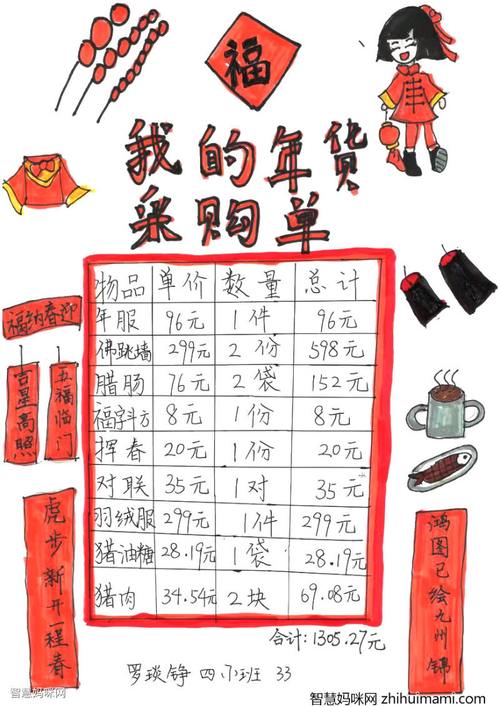 福
我的年货
采购单
物品 单价 数量 总计
年服 96元 1件 96元
佛跳墙 299元 2份 598元
腊肠 76元 2袋 152元
福字斗方 8元 1份 8元
挥春 20元 1份 20元
对联 35元 1对 35元
羽绒服 299元 1件 299元
猪油糖 28.19元 1袋 28.19元
猪肉 34.54元 2块 69.08元
合计:1305.27元
福纳春迎
吉星高照
五福临门
虎步新开一程春
鸿图已绘九州锦
罗琰铮 四小班 33
智慧妈咪网
智慧妈咪网 zhihuimami.com